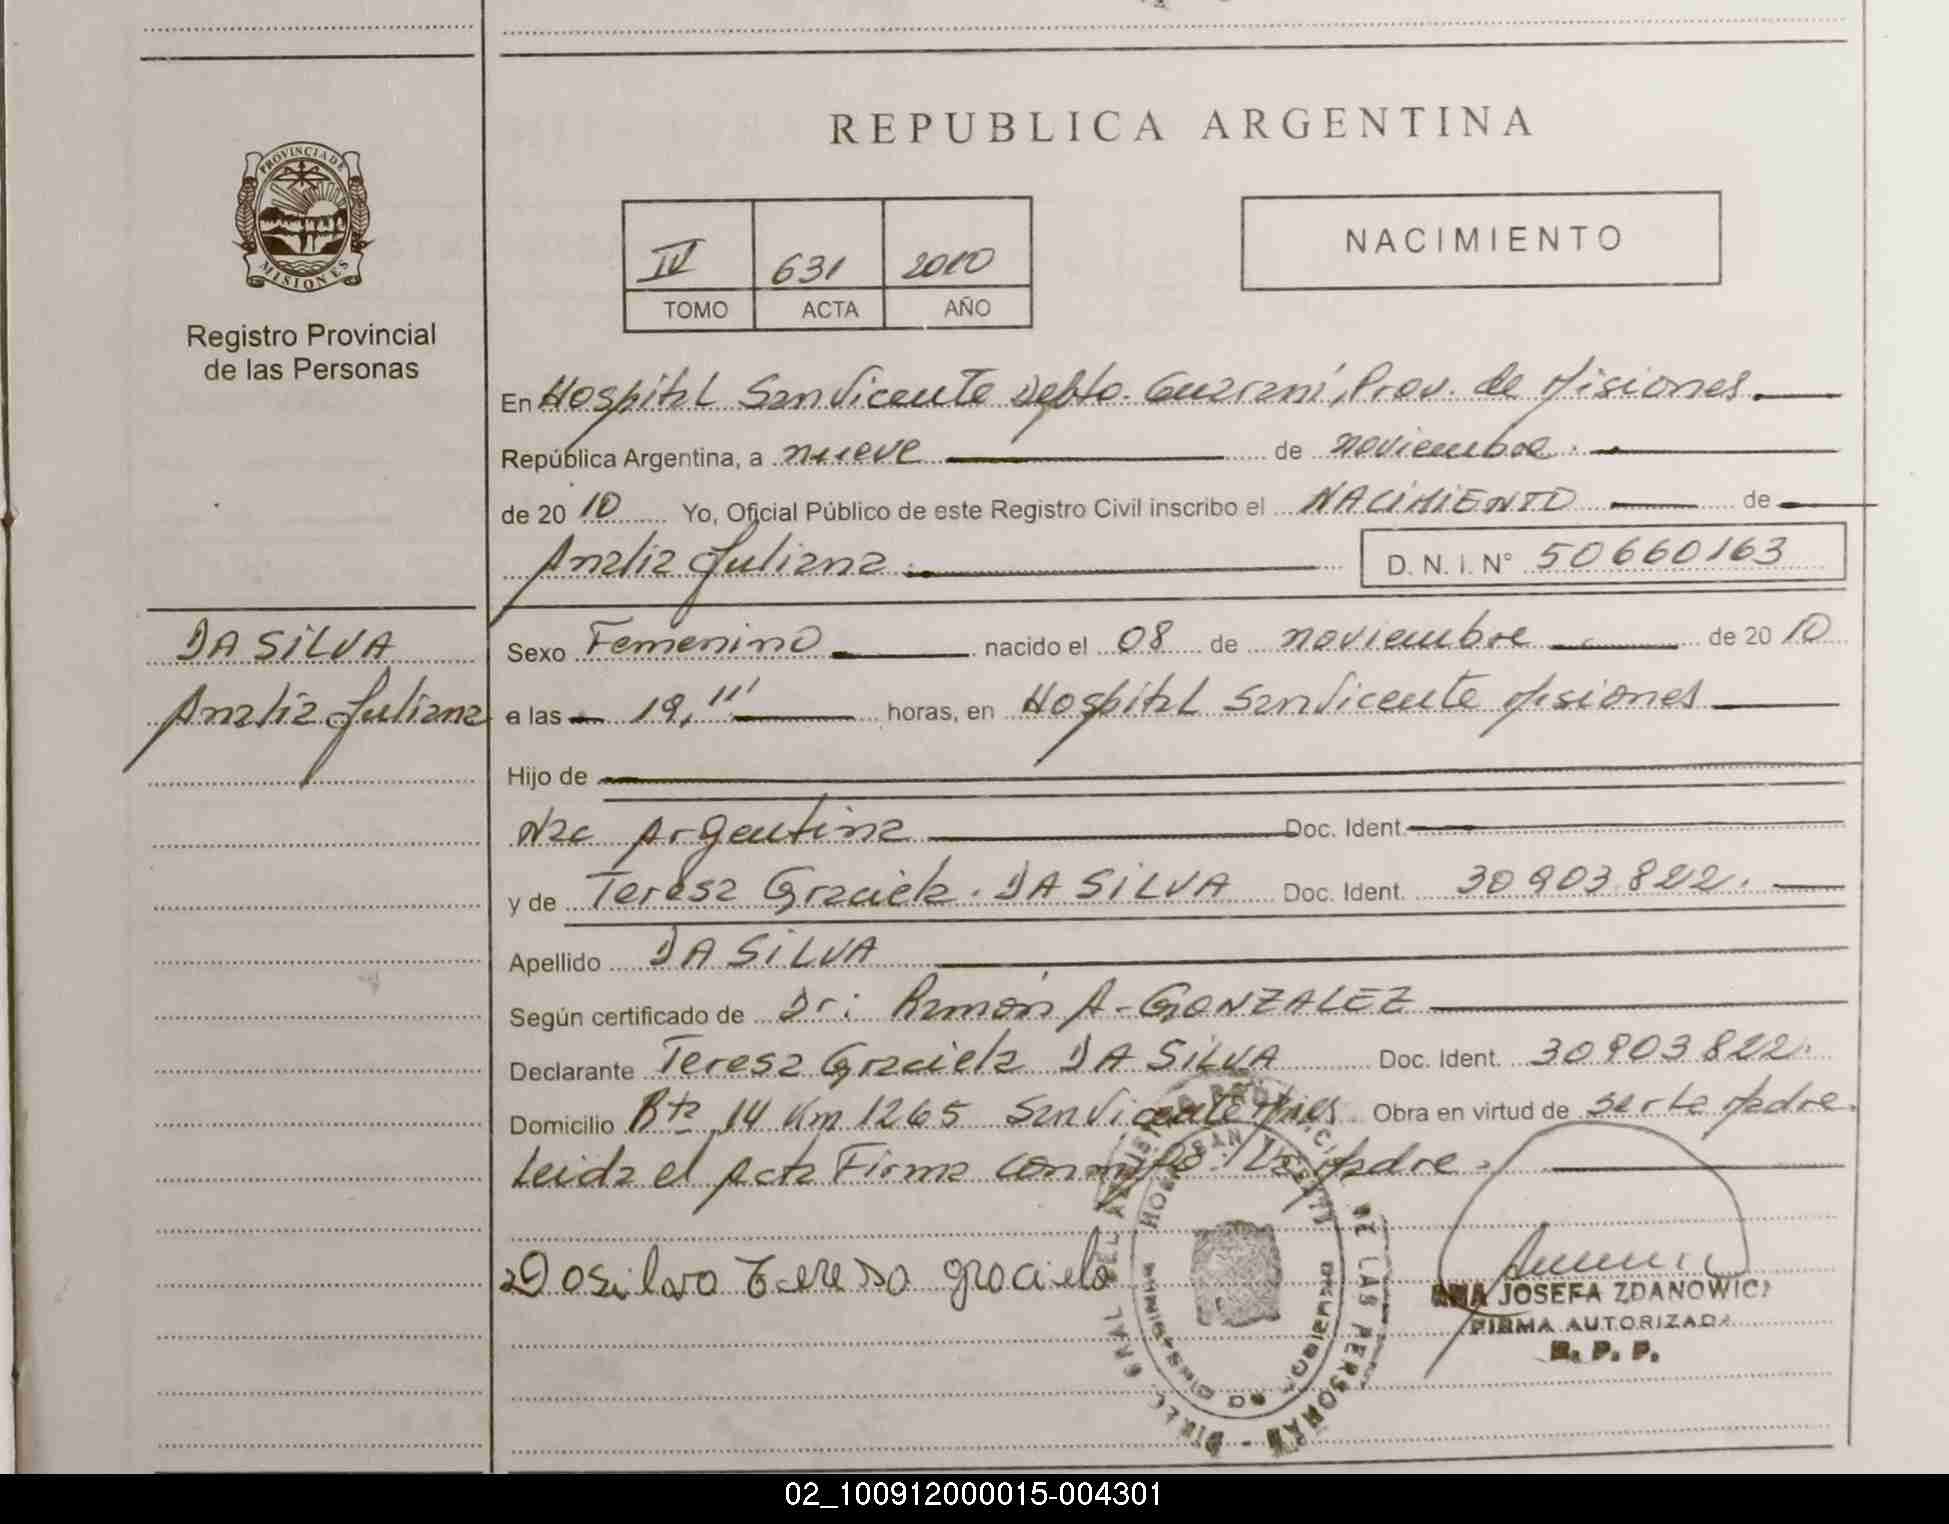 REPUBLICA ARGENTINA
PROVINCIA DE
MISIONES
Registro Provincial
de las Personas
IV 631 2010
TOMO ACTA AÑO
NACIMIENTO
En Hospital San Vicente Depto. Guarani, Prov. de Misiones.
República Argentina, a nueve de noviembre.
de 20 10 Yo, Oficial Público de este Registro Civil inscribo el NACIMIENTO de
Analia Juliana. D. N. I. N° 50660163
DA SILVA
Analia Juliana
Sexo Femenino nacido el 08 de noviembre de 20 10
a las 19, horas, en Hospital San Vicente Misiones
Hijo de
Nac Argentina Doc. Ident.
y de Teresa Graciela. DA SILVA Doc. Ident. 30903822.
Apellido DA SILVA
Según certificado de Dr: Ramón A- GONZALEZ
Declarante Teresa Graciela DA SILVA Doc. Ident. 30903822.
Domicilio Rta 14 Km 1265 San Vicente Mnes Obra en virtud de ser La Madre.
Leida el Acta Firma conmigo: La Madre.
Dasilva Teresa graciela
HOSP. SAN VICENTE
DE LAS PERSONAS
ANA JOSEFA ZDANOWICZ
FIRMA AUTORIZADA
R. P. P.
02_100912000015-004301